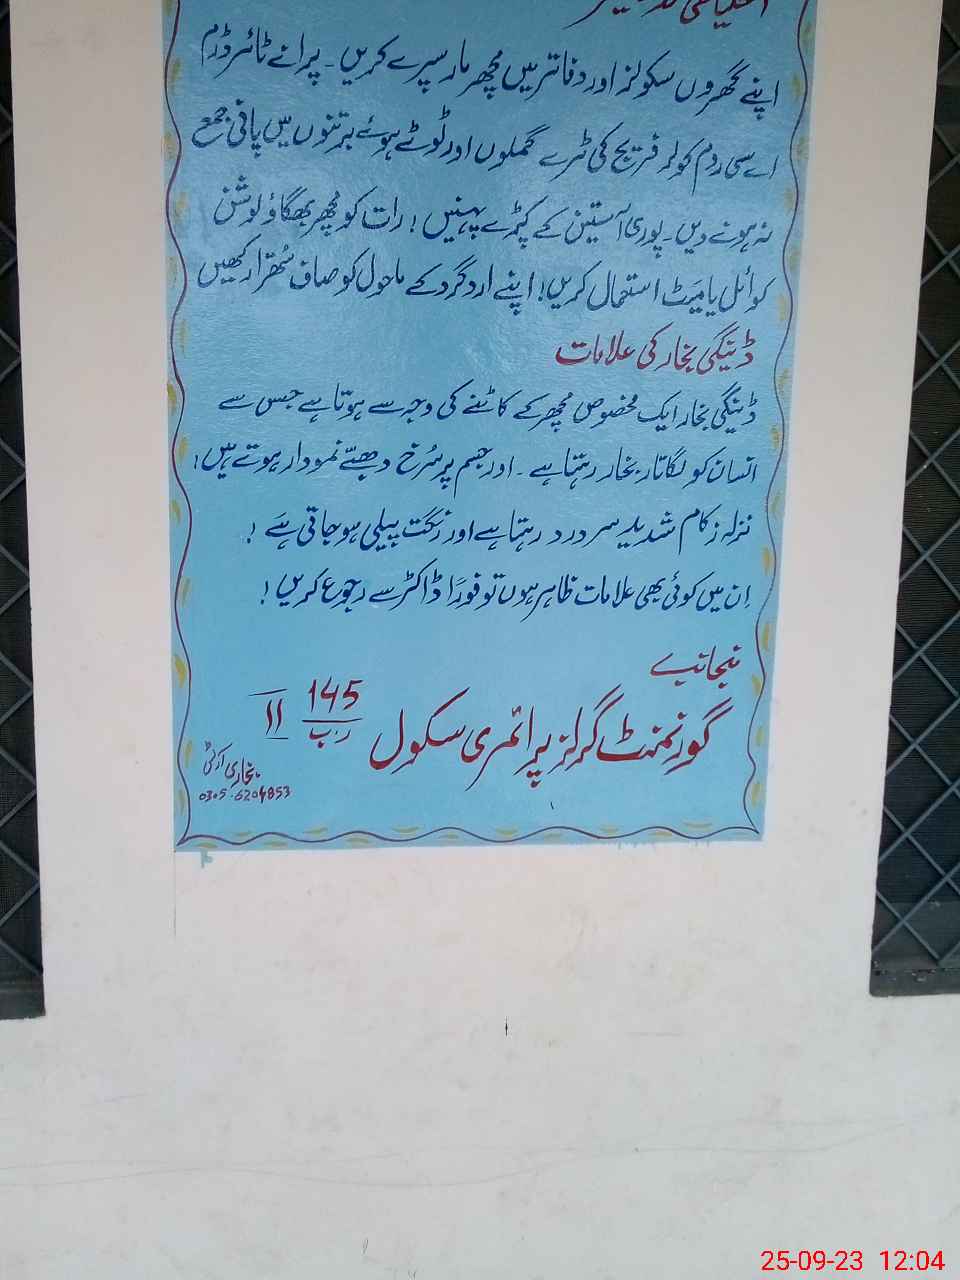 احتیاطی تدابیر
اپنے گھروں سکولز اور دفاتر میں مچھر مار سپرے کریں۔ پرانے ٹائر ڈرم
اے سی روم کولر فریج کی ٹرے گملوں اور ٹوٹے ہوئے برتنوں میں پانی جمع
نہ ہونے دیں۔ پوری آستین کے کپڑے پہنیں! رات کو مچھر بھگاؤ لوشن
کوائل یا میٹ استعمال کریں! اپنے اردگرد کے ماحول کو صاف ستھرا رکھیں
ڈینگی بخار کی علامات
ڈینگی بخار ایک مخصوص مچھر کے کاٹنے کی وجہ سے ہوتا ہے جس سے
انسان کو لگاتار بخار رہتا ہے۔ اور جسم پر سُرخ دھبّے نمودار ہوتے ہیں!
نزلہ زکام شدید سر درد رہتا ہے اور رنگت پیلی ہو جاتی ہے!
اِن میں کوئی بھی علامات ظاہر ہوں تو فوراً ڈاکٹر سے رجوع کریں!
منجانب
گورنمنٹ گرلز پرائمری سکول 145 ر ب II
بخاری آرٹ
0305-6204853
25-09-23 12:04